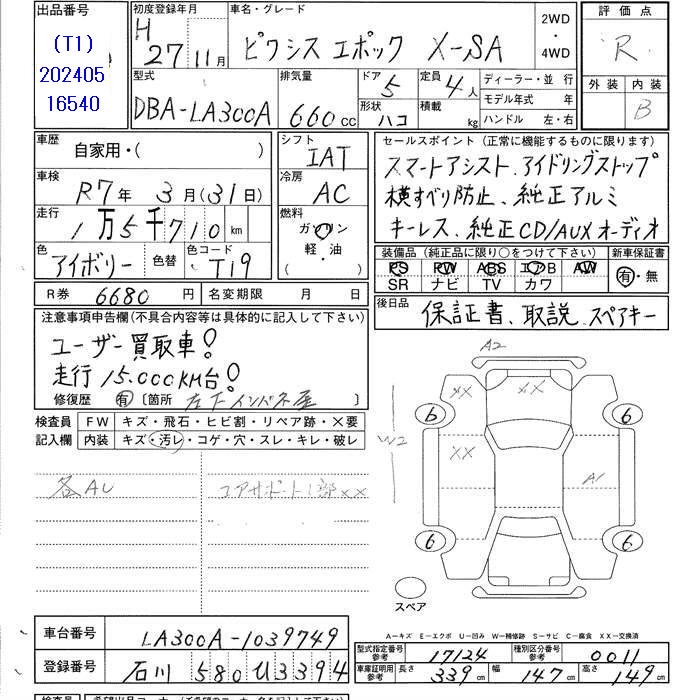 出品番号
(T1)
202405
16540
初度登録年月
H 27年11月
車名・グレード
ピクシス エポック X-SA
2WD
・
4WD
評価点
R
外装 内装
B
型式
DBA-LA300A
排気量
660 cc
ドア
5
形状
ハコ
定員
4人
積載
kg
ディーラー・並行
モデル年式 年
ハンドル 左・右
車歴
自家用・( )
車検
R7年 3月(31日)
走行
1万5千710 km
色
アイボリー
色替
色コード
T19
シフト
IAT
冷房
AC
燃料
ガソリン
軽・油
( )
セールスポイント (正常に機能するものに限ります)
スマートアシスト、アイドリングストップ
横すべり防止、純正アルミ
キーレス、純正CD/AUXオーディオ
装備品 (純正品に限り○をつけて下さい)
PS PW ABS エアB AW
SR ナビ TV カワ
新車保証書
有・無
R券 6680 円
名変期限 月 日
後日品
保証書、取説、スペアキー
注意事項申告欄(不具合内容等は具体的に記入して下さい)
ユーザー買取車!
走行15.000KM台!
修復歴 有 〔箇所 〕
検査員
記入欄
FW キズ・飛石・ヒビ割・リペア跡・×要
内装 キズ・汚レ・コゲ・穴・スレ・キレ・破レ
各AU
コアサポート1部××
A2
×× ××
6 6
W2
××
A1
6 6
スペア
A-キズ E-エクボ U-凹み W-補修跡 S-サビ C-腐食 XX-交換済
車台番号
LA300A-1039749
登録番号
石川 580 ひ 3394
型式指定番号
参考
17124
種別区分番号
参考
0011
車庫証明用
参考
長さ 339 cm
幅 147 cm
高さ 149 cm